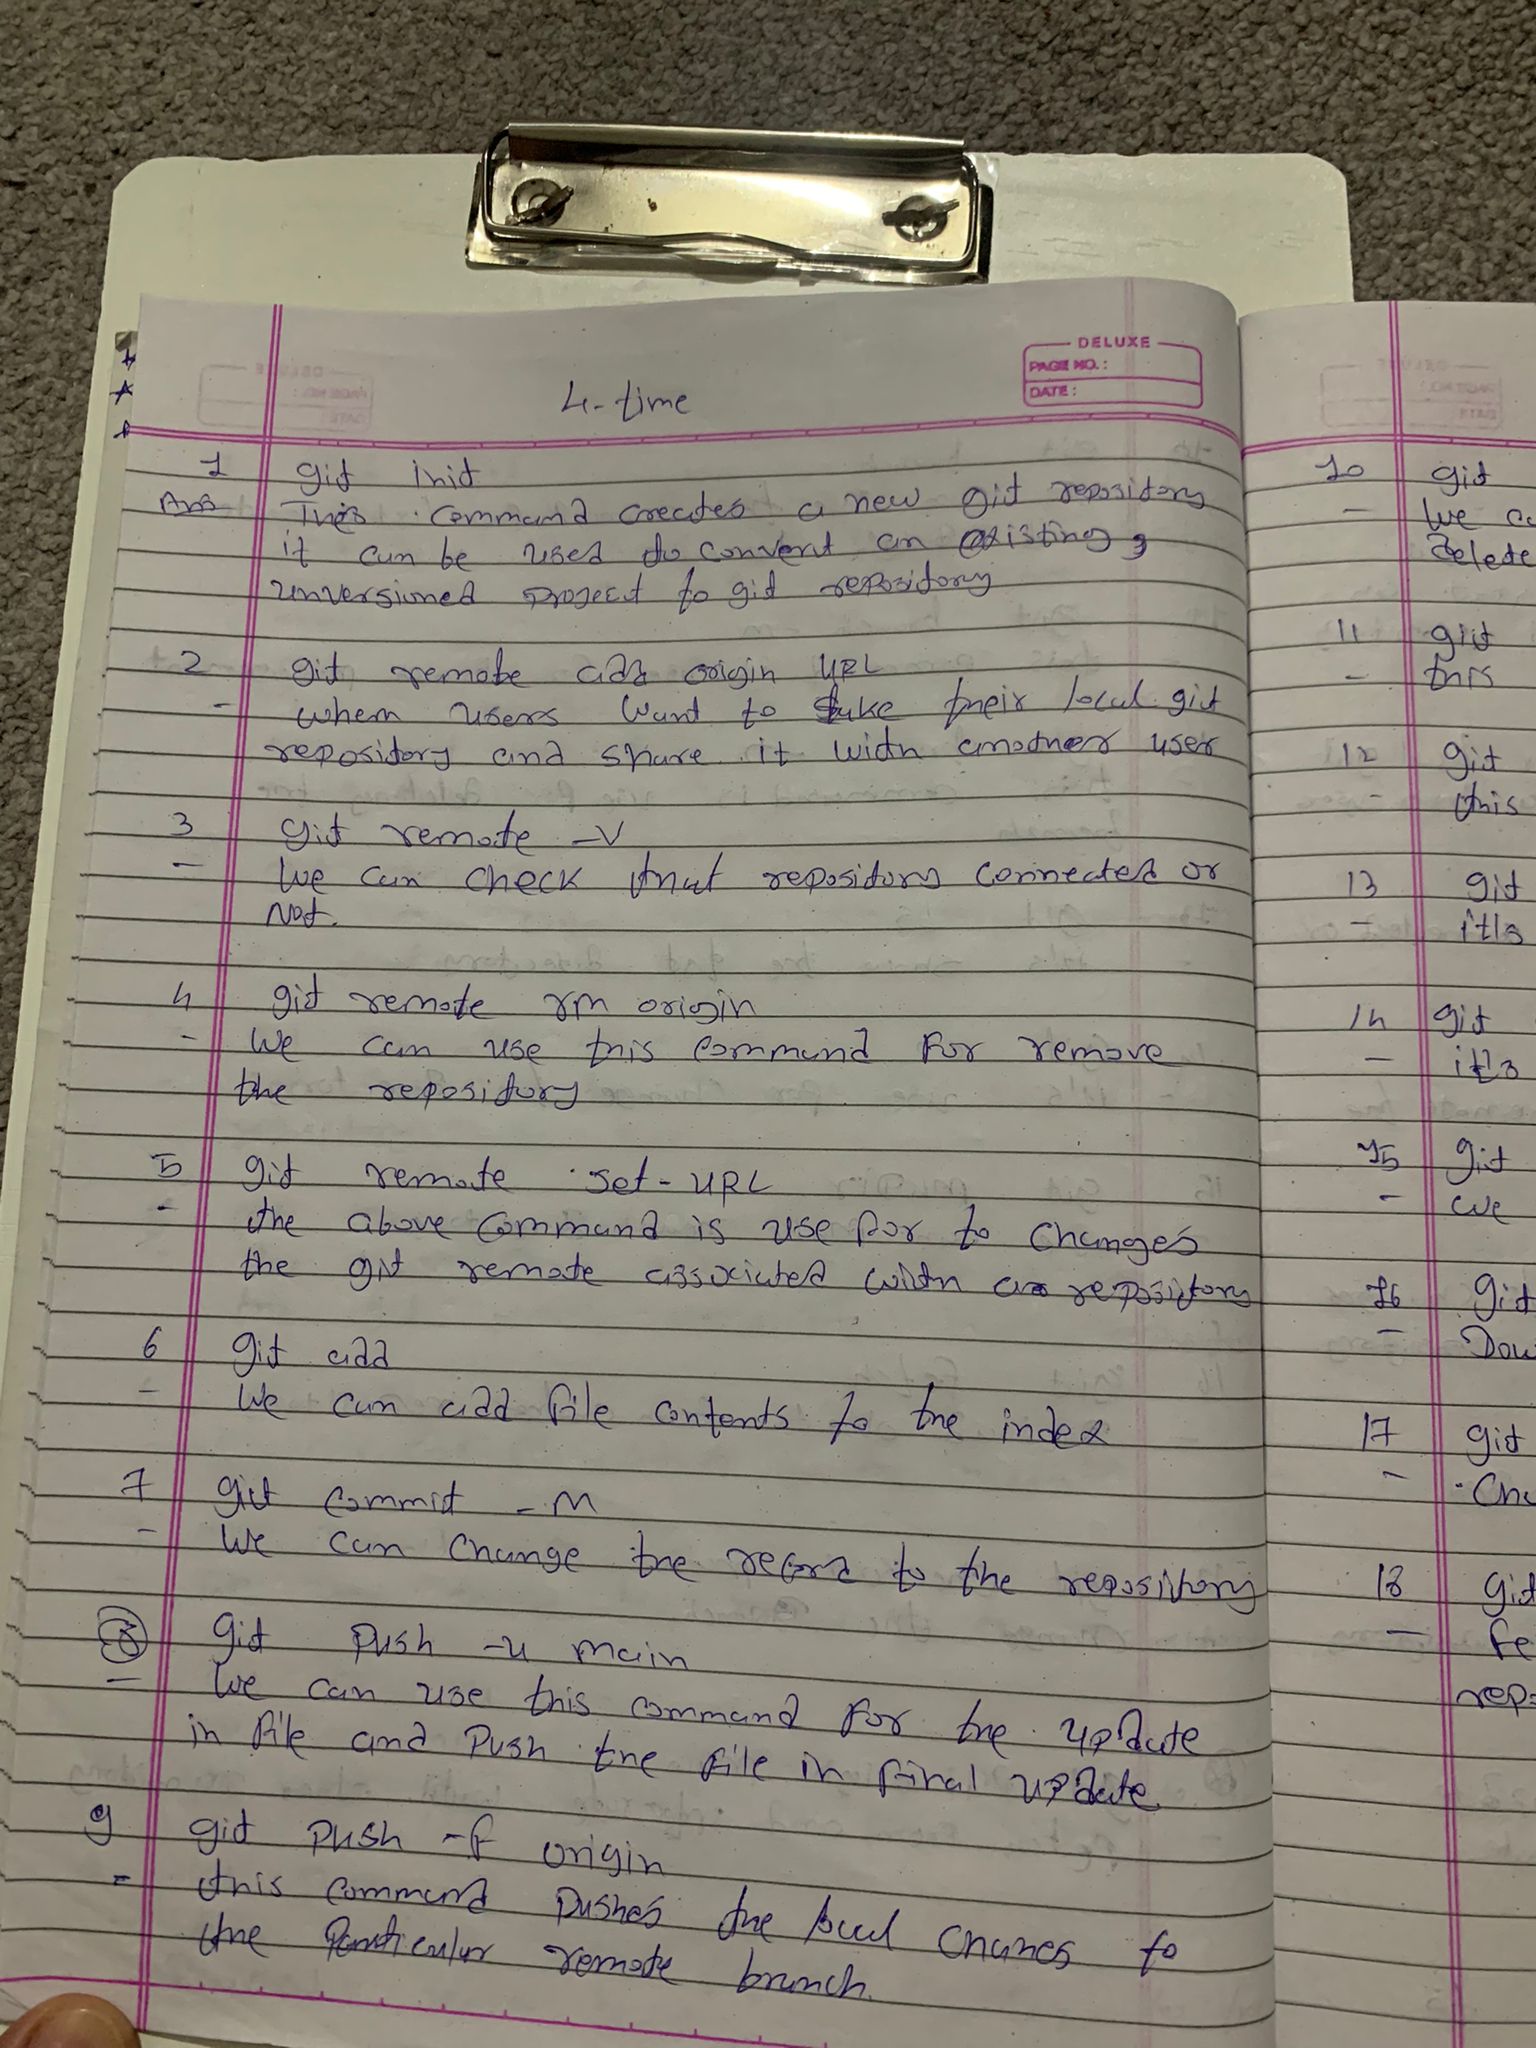 DELUXE
PAGE NO. :
DATE :
4-time
1 git init
Ans This command creates a new git repository
it can be used to convert an existing,
unversioned project to git repository
2 git remote add origin URL
- when users want to take their local git
repository and share it with another user
3 git remote -v
- We can check that repository connected or
not.
4 git remote rm origin
- We can use this command for remove
the repository
5 git remote set-URL
- the above command is use for to changes
the git remote associated with a repository
6 git add
- We can add file contents to the index
7 git commit -m
- We can change the record to the repository
8 git push -u main
- We can use this command for the update
in file and push the file in final update
9 git push -f origin
- this command pushes the local chanes to
the particular remote branch.
10 git
- We
delete
11 git
- this
12 git
- this
13 git
- it's
14 git
- it's
15 git
- we
16 git
-
17 git
-
18 git
-